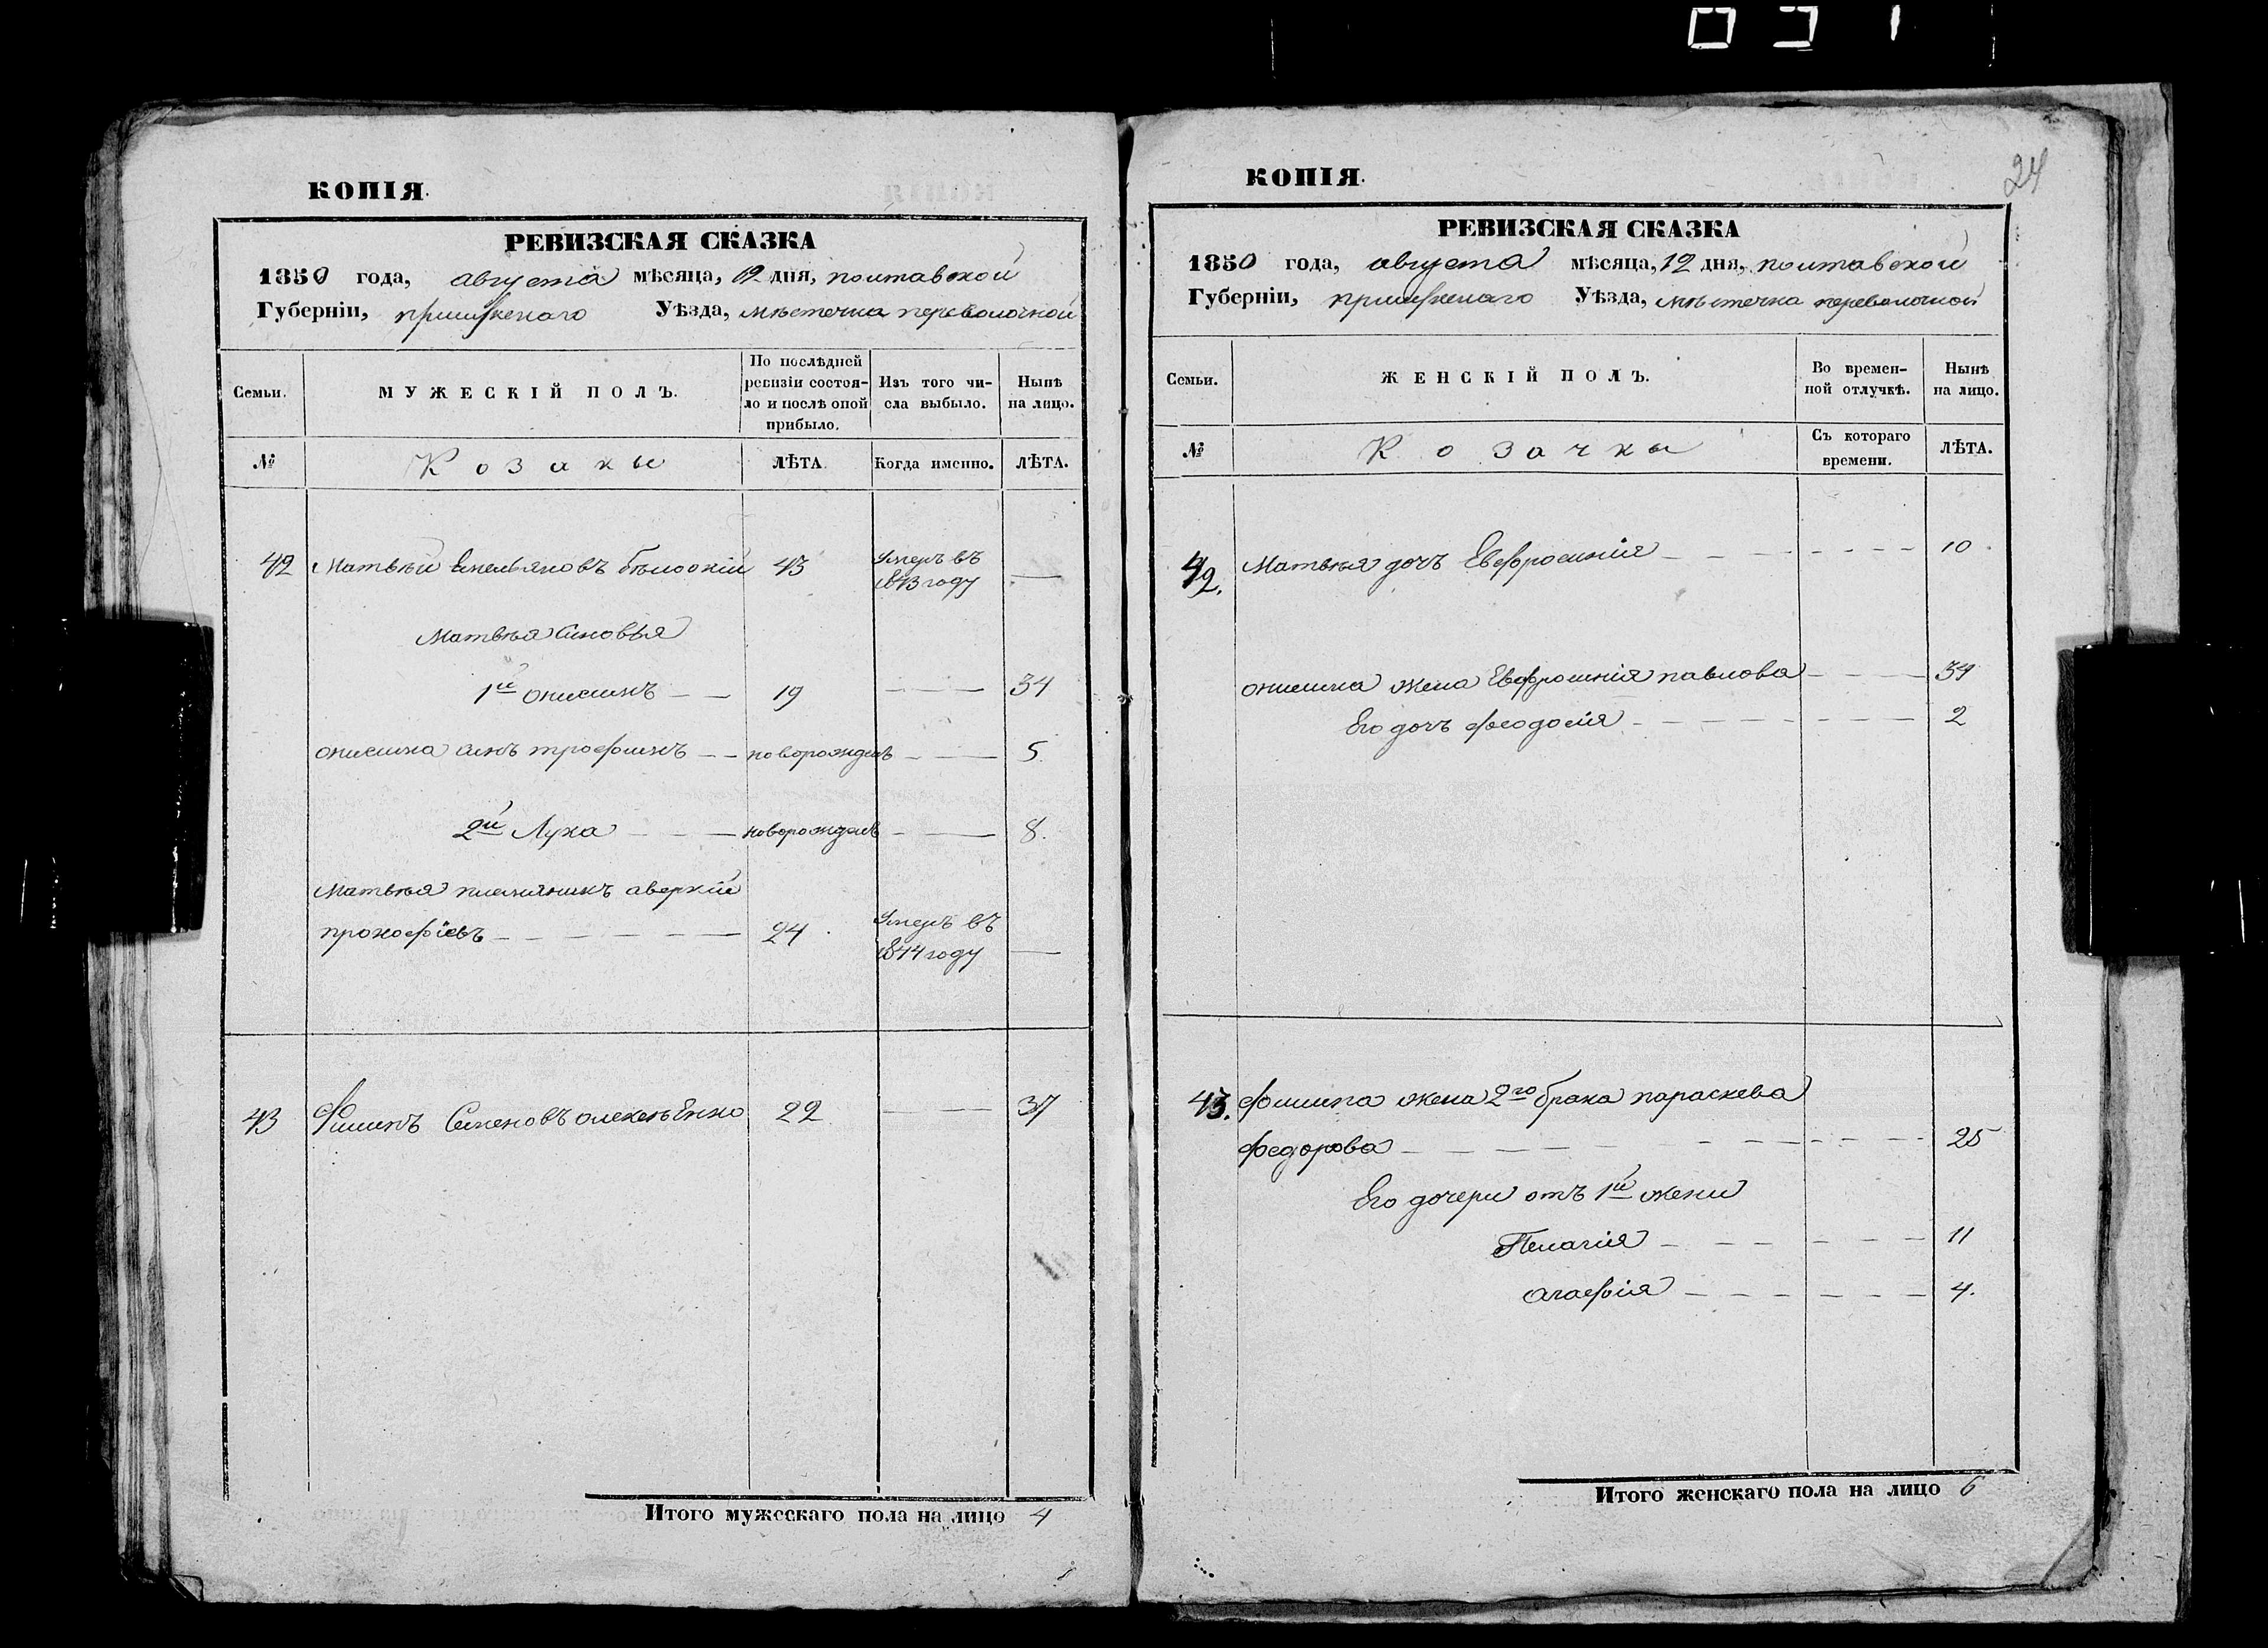 КОПІЯ.
РЕВИЗСКАЯ СКАЗКА
1850 года, августа мѣсяца, 12 дня, полтавской
Губерніи, прилукскаго Уѣзда, мѣстечка переволочной
Семьи.
МУЖЕСКІЙ ПОЛЪ.
По послѣдней
ревизіи состоя-
ло и послѣ оной
прибыло.
Изъ того чи-
сла выбыло.
Нынѣ
на лицо.
№
Козаки
ЛѢТА.
Когда именно.
ЛѢТА.
42 Матвѣй Емельяновъ бѣлоокій 43 Умеръ въ
1843 году —
Матвѣя Синовья
1й онисимъ — — 19 — — — 34
онисима синъ трофимъ — — новорожденъ — — 5.
2й Лука — — — новорожденъ — — 8.
Матвѣя племянникъ аверкій
прокофіевъ — — — — — 24. Умеръ въ
1844 году —
43 Филипъ Семеновъ олексѣЕнко 22 — — 37
Итого мужескаго пола на лицо 4
24
КОПІЯ.
РЕВИЗСКАЯ СКАЗКА
1850 года, августа мѣсяца, 12 дня, полтавской
Губерніи, прилукскаго Уѣзда, мѣстечка переволочной
Семьи.
ЖЕНСКІЙ ПОЛЪ.
Во времен-
ной отлучкѣ.
Нынѣ
на лицо.
№
Козачки
Съ котораго
времени.
ЛѢТА.
42. Матвѣя дочь Евфросинія — — — — — 10.
онисима жена Евфросинія павлова — — — 34
Его дочь феодосія — — — — — 2
43. филипа жена 2го брака параскева
федорова — — — — — — 25
Его дочери отъ 1й жени
Пелагія — — — — — 11
агафія — — — — — 4.
Итого женскаго пола на лицо 6